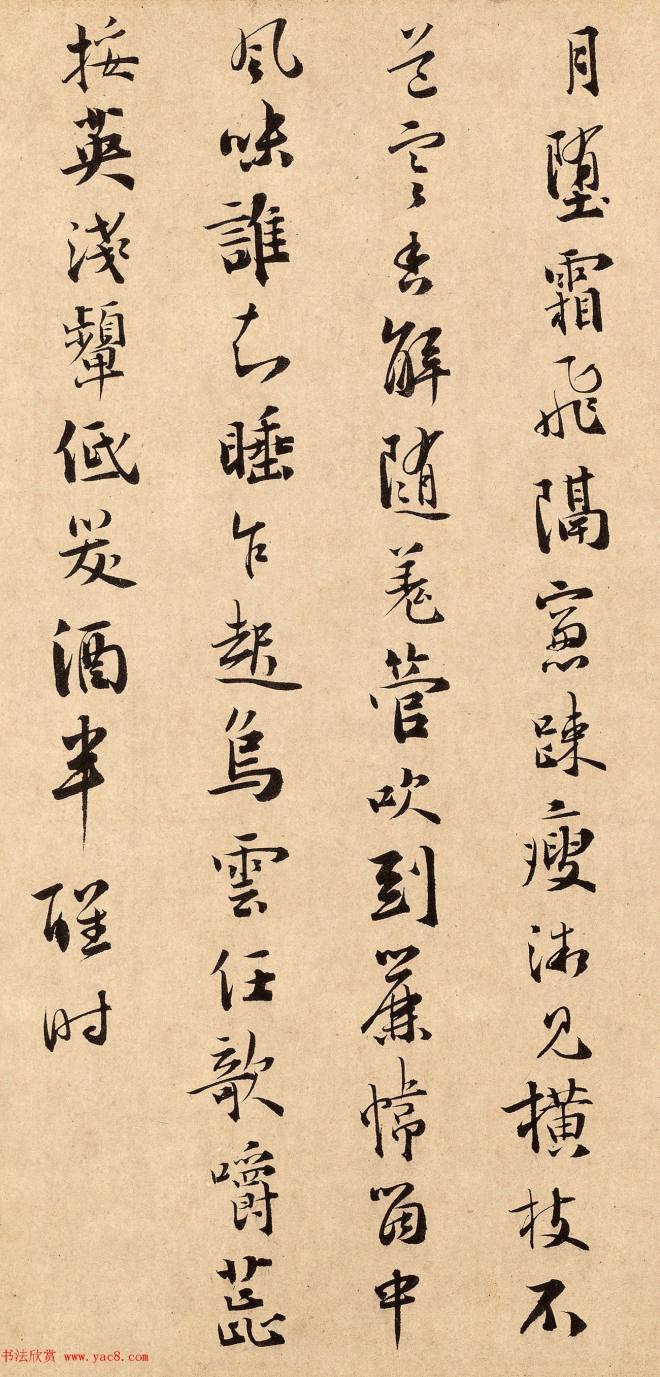 月墮霜飛隔窻踈瘦微見橫枝不
道寒香解隨羌管吹到簾幃箇中
風味誰知睡乍起烏雲任欹嚼蕋
挼英淺顰低笑酒半醒时
书法欣赏 www.yac8.com